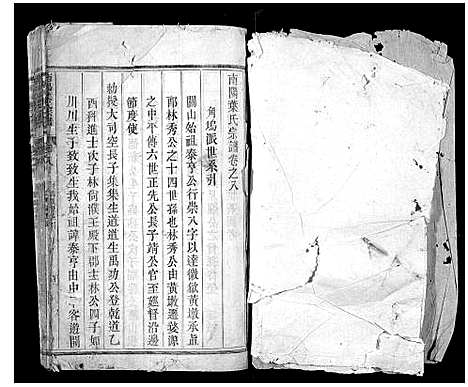 南陽葉氏宗譜卷之八
角塢派世系引
關山始祖泰亨公行崇八字以達徽歙黃墩承處
郎林秀公之十四世孫也林秀公由黃墩遷婺源
之中平傳六世正先公長子靖公官至經督沿邊
節度使
勅授大司空長子集集生道道生禹功公登乾道乙
西科進士次子林尚濮王殿下郡主林公四子
川川生子致致生我始祖諱泰亨由中客遊關